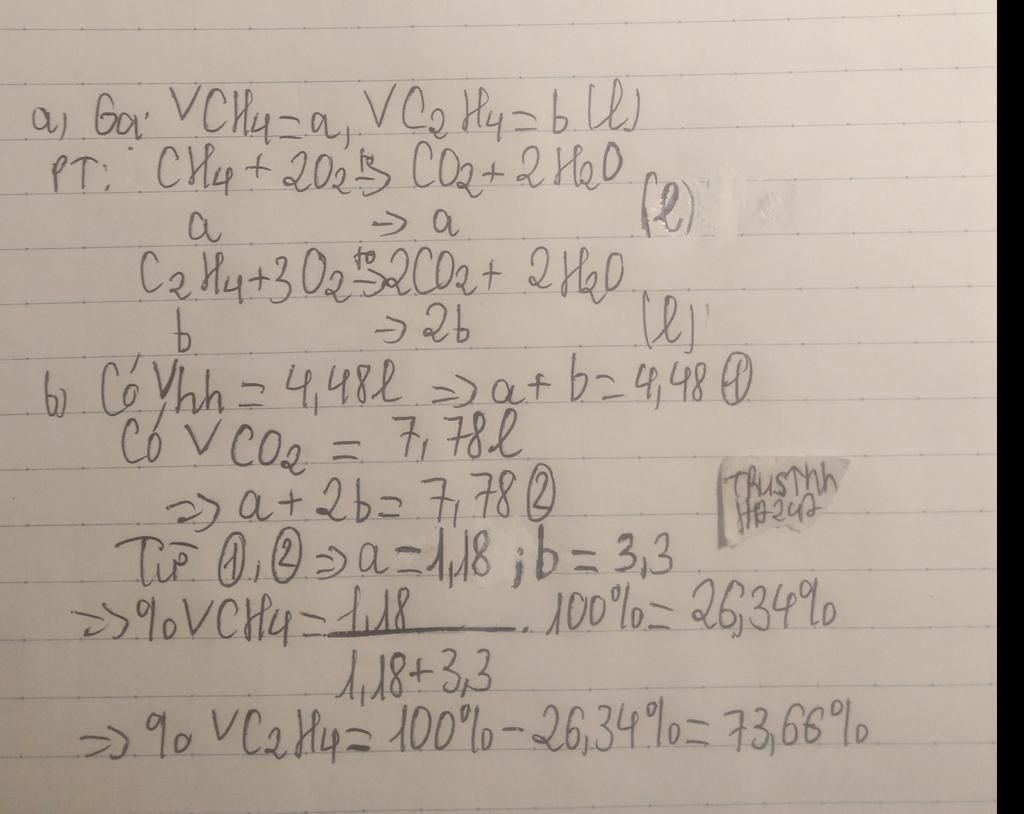 a, Gọi VCH4 = a, VC2H4 = b (l)
PT: CH4 + 2O2 t°→ CO2 + 2H2O
a → a (l)
C2H4 + 3O2 t°→ 2CO2 + 2H2O
b → 2b (l)
b, Có Vhh = 4,48l => a + b = 4,48 ①
Có VCO2 = 7,78l
=> a + 2b = 7,78 ②
Từ ①, ② => a = 1,18 ; b = 3,3
=> %VCH4 = 1,18 . 100% = 26,34%
1,18 + 3,3
=> % VC2H4 = 100% - 26,34% = 73,66%